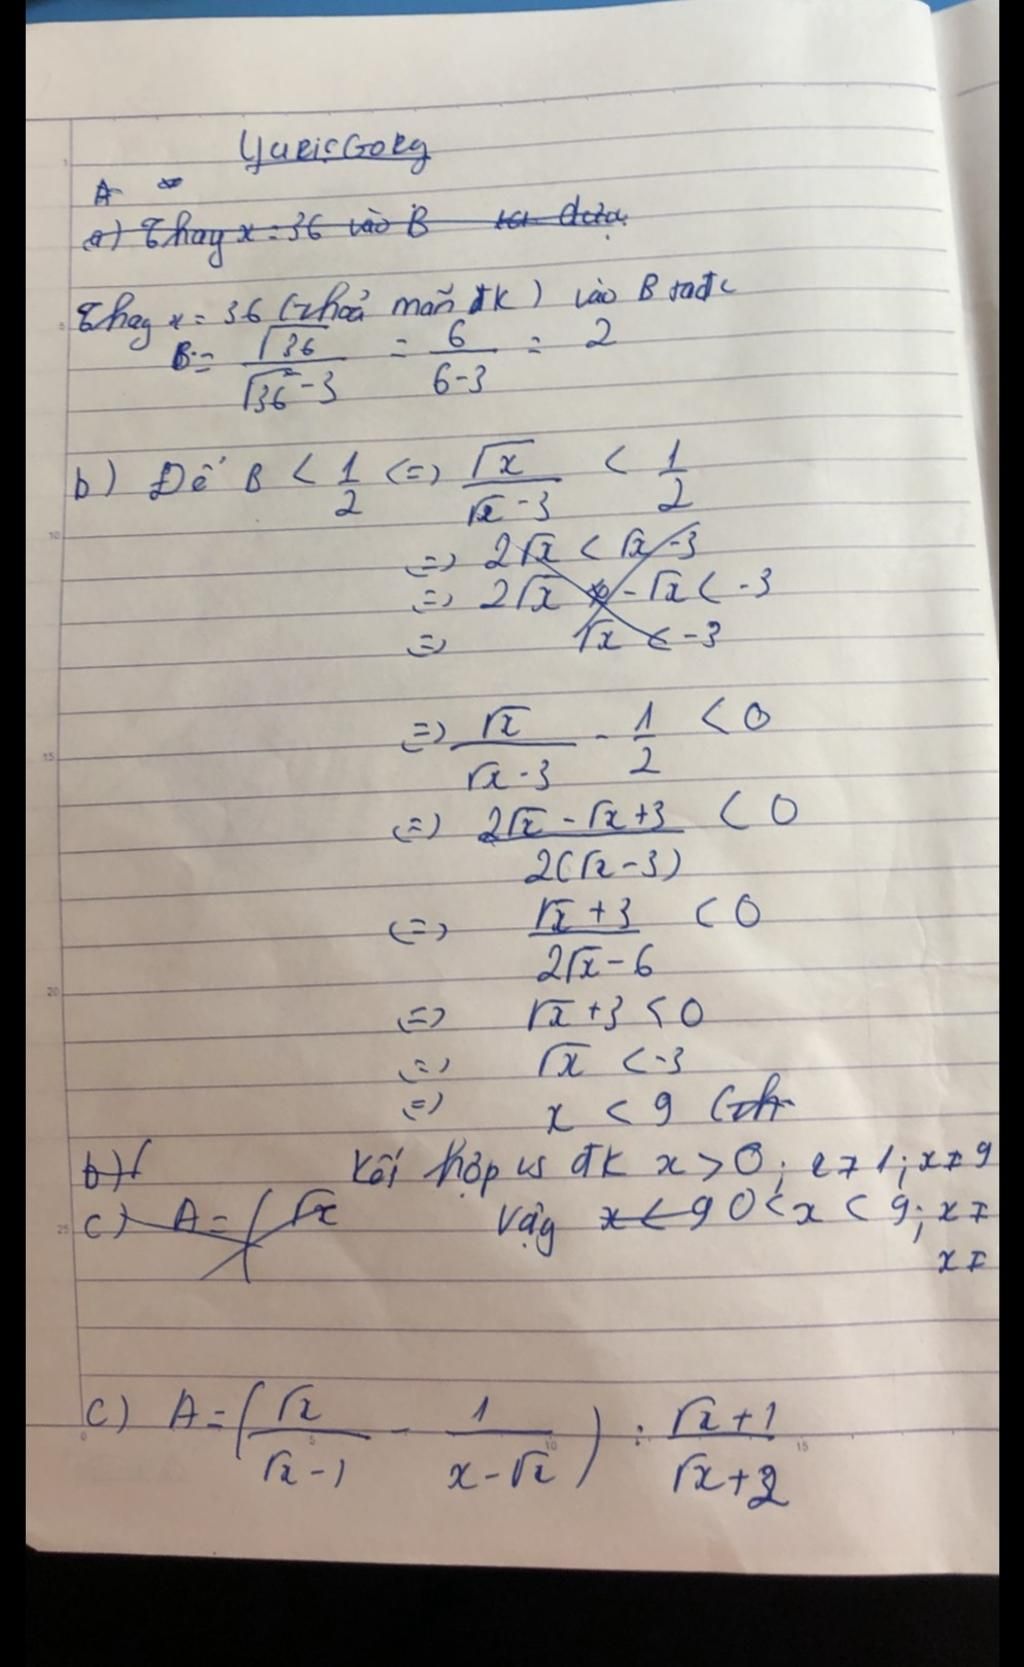 YurisGorg
A
a) Thay x = 36 vào B ta được
Thay x = 36 (thoả mãn đk) vào B ta đc
B = √36 / (√36 - 3) = 6 / (6-3) = 2
b) Để B < 1/2 <=> √x / (√x - 3) < 1/2
<=> 2√x < √x - 3
<=> 2√x - √x < -3
<=> √x < -3
<=> √x / (√x - 3) - 1/2 < 0
<=> (2√x - √x + 3) / 2(√x - 3) < 0
<=> (√x + 3) / (2√x - 6) < 0
<=> √x + 3 < 0
<=> √x < -3
<=> x < 9
b) Kết hợp vs đk x > 0; x ≠ 1; x ≠ 9
c) A = ( √x Vậy x < 9 0 < x < 9; x ≠
x ≠
c) A = ( √x / (√x - 1) - 1 / (x - √x) ) : (√x + 1) / (√x + 2)